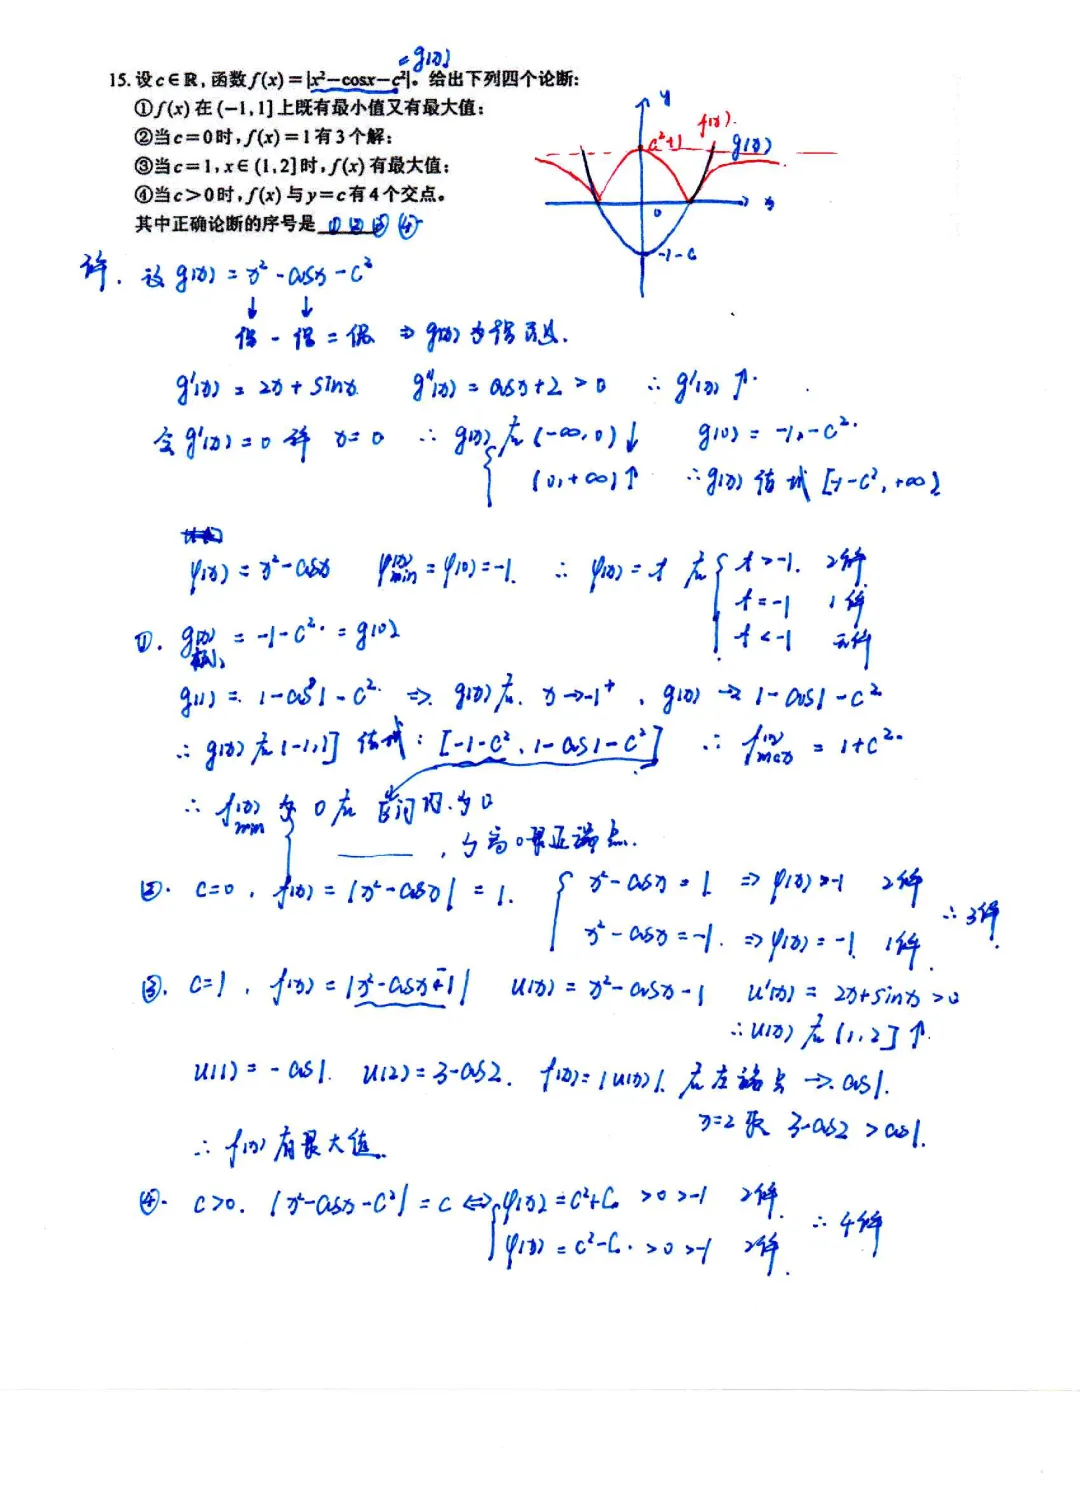 =g(x)
15.设c∈R,函数f(x)=|x²-cosx-c²|。给出下列四个论断:
①f(x)在(-1,1]上既有最小值又有最大值;
②当c=0时,f(x)=1有3个解;
③当c=1,x∈(1,2]时,f(x)有最大值;
④当c>0时,f(x)与y=c有4个交点。
其中正确论断的序号是 ①②③④
y
f(x).
c²+1
g(x)
x
0
-1-c
解. 设 g(x) = x² - cosx - c²
↓ ↓
偶 - 偶 = 偶 ⇒ g(x) 为偶函数.
g'(x) = 2x + sinx g''(x) = cosx+2 > 0 ∴ g'(x) ↑.
令 g'(x) = 0 解 x=0 ∴ g(x) 在 (-∞,0) ↓ g(0) = -1-c².
(0,+∞) ↑ ∴ g(x) 值域 [-1-c²,+∞)
φ(x) = x²-cosx φ(x)min = φ(0) = -1. ∴ φ(x) = t 在 { t>-1. 2解
t=-1 1解
t<-1 无解
①. g(x)min = -1-c². = g(0)
g(1) = 1-cos1-c² ⇒ g(x) 在. x→-1⁺, g(x) → 1-cos1-c²
∴ g(x) 在 (-1,1] 值域: [-1-c², 1-cos1-c²] ∴ f(x)max = 1+c².
∴ f(x)min 为 { 0在区间内.为0
, 为离0最近端点.
②. c=0, f(x) = |x²-cosx| = 1. { x²-cosx=1 ⇒ φ(x)>-1 2解
x²-cosx=-1. ⇒ φ(x)=-1 1解. ∴ 3解.
③. c=1, f(x) = |x²-cosx-1| u(x) = x²-cosx-1 u'(x) = 2x+sinx>0
∴ u(x) 在 (1,2] ↑.
u(1) = -cos1. u(2) = 3-cos2. f(x) = |u(x)|. 在左端点 → cos1.
x=2 取 3-cos2 > cos1.
∴ f(x) 有最大值.
④. c>0. |x²-cosx-c²| = c ⇔ { φ(x) = c²+c. >0>-1 2解
φ(x) = c²-c. >0>-1 2解. ∴ 4解